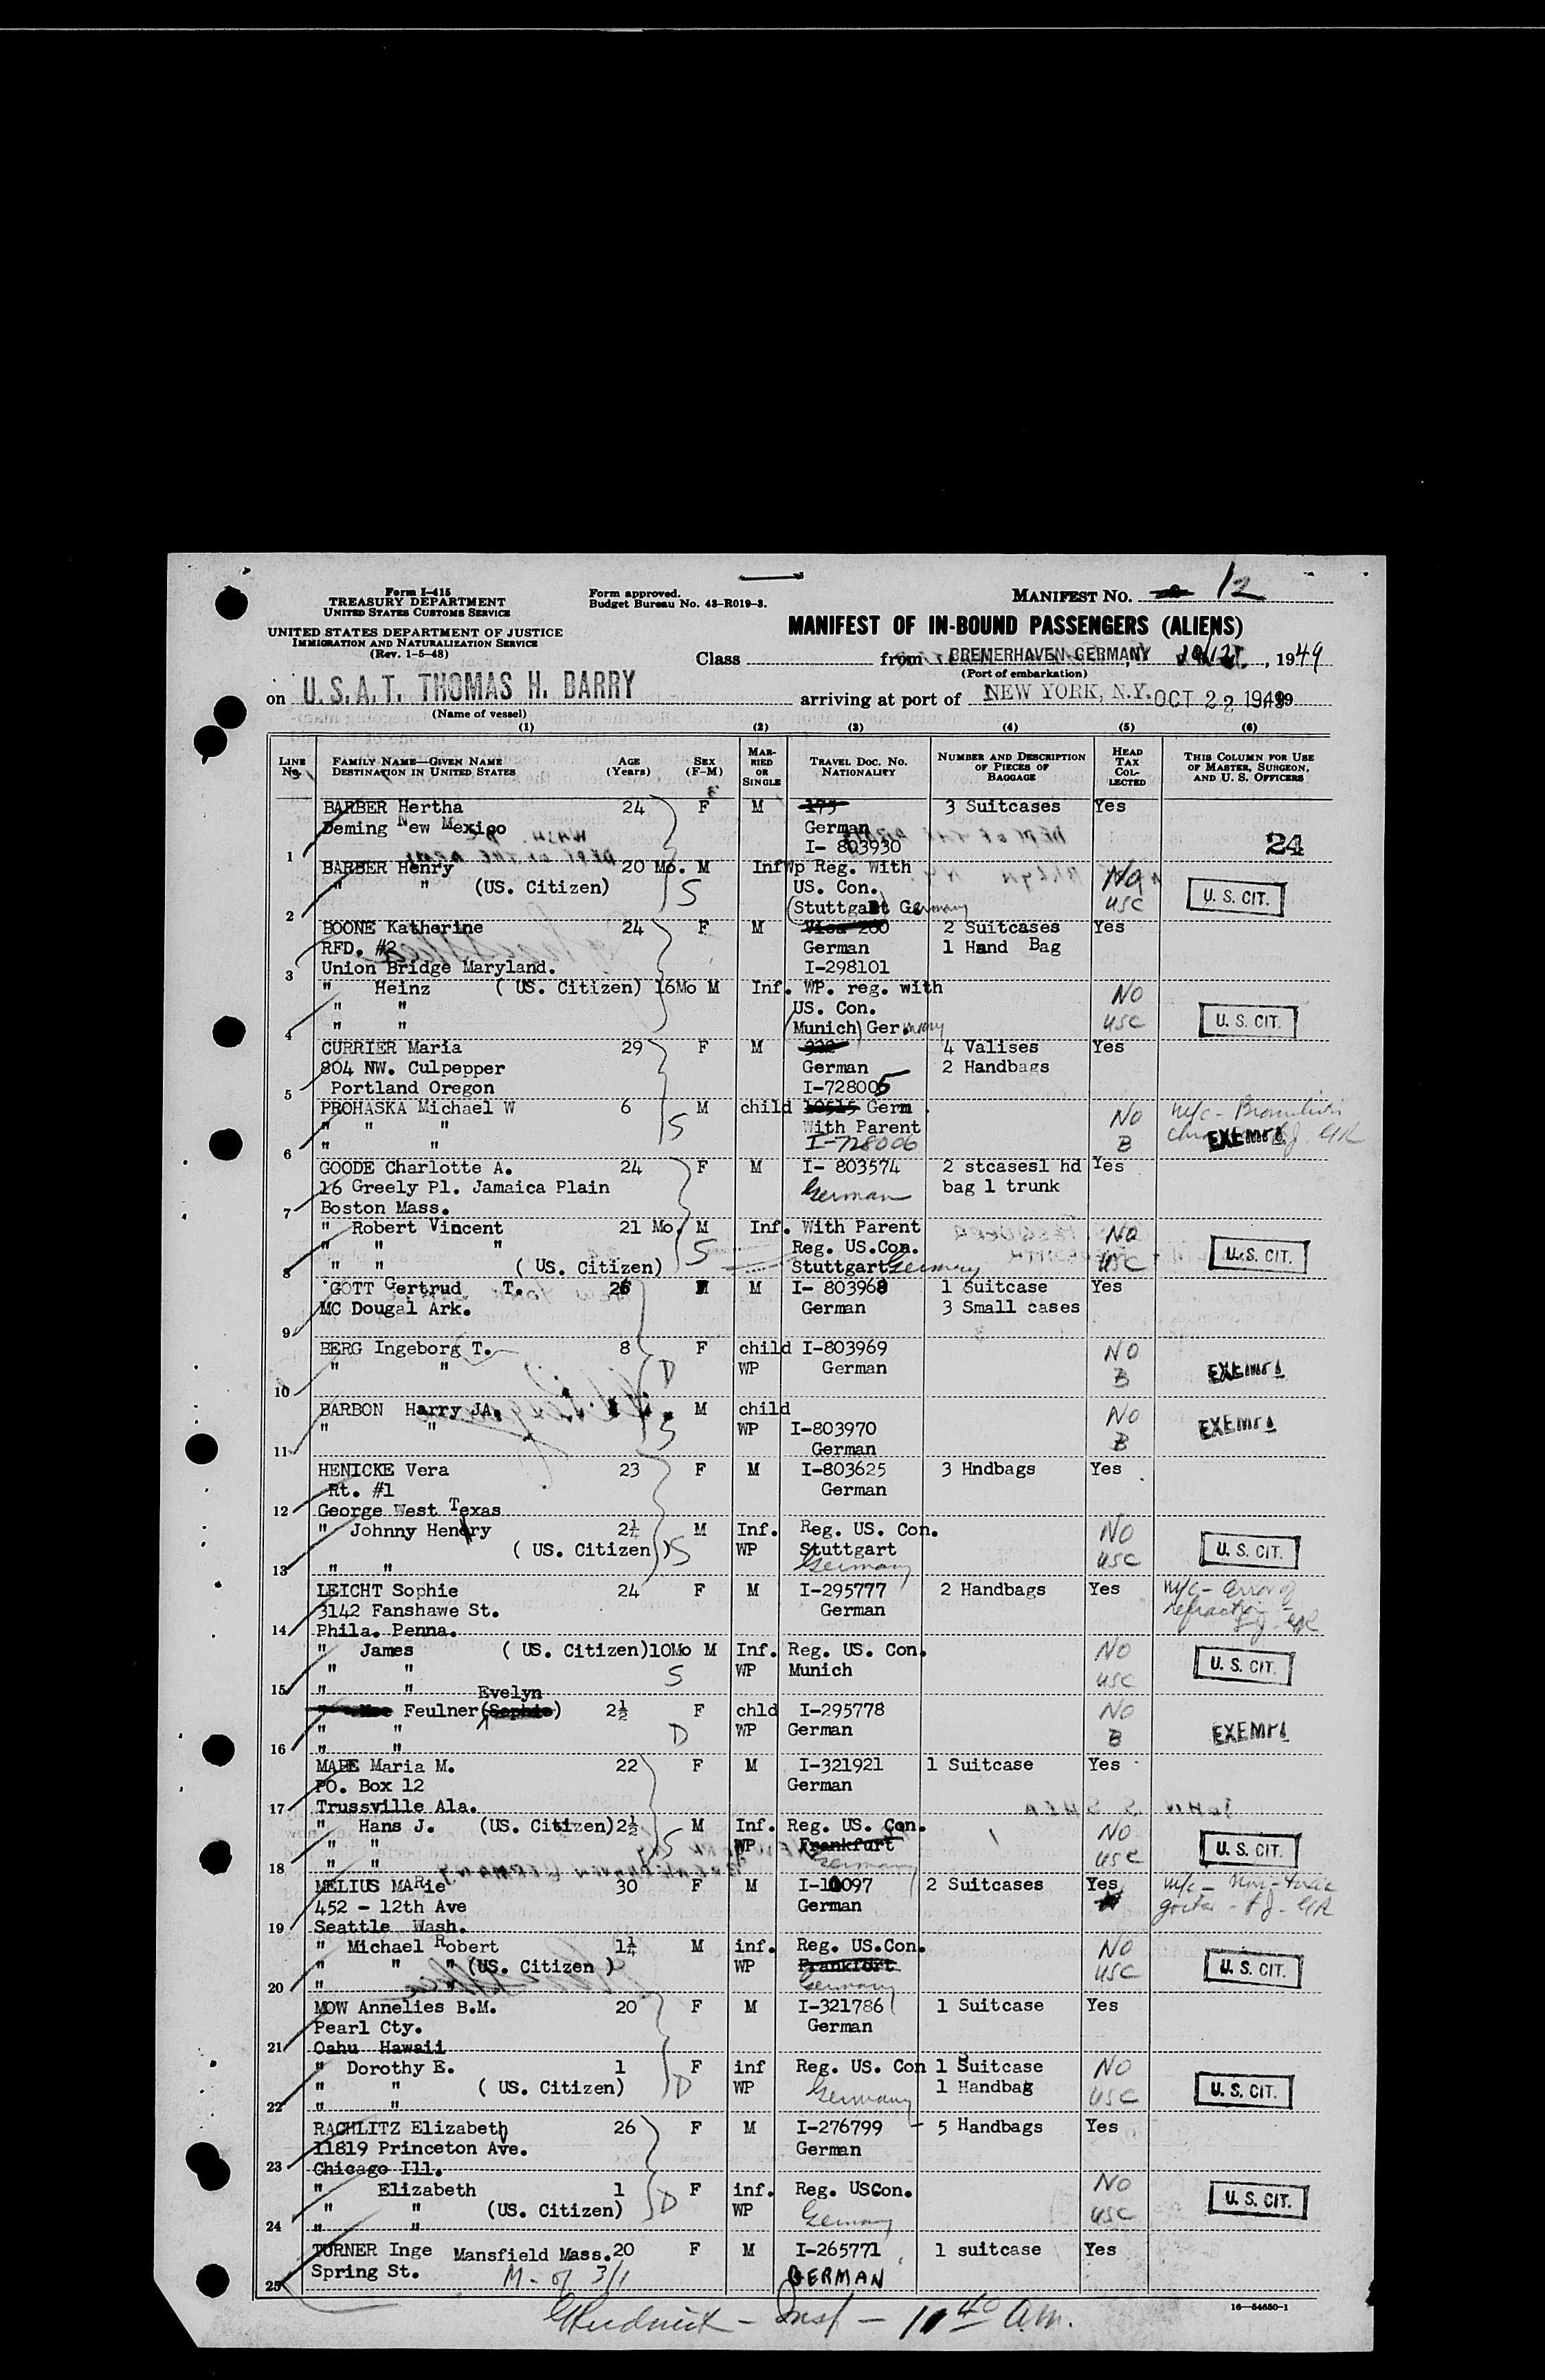 Form I-415
TREASURY DEPARTMENT
UNITED STATES CUSTOMS SERVICE
UNITED STATES DEPARTMENT OF JUSTICE
IMMIGRATION AND NATURALIZATION SERVICE
(Rev. 1-5-48)
Form approved.
Budget Bureau No. 43-R019-3.
MANIFEST NO. 12
MANIFEST OF IN-BOUND PASSENGERS (ALIENS)
Class from BREMERHAVEN GERMANY, 1949
(Port of embarkation)
on U.S.A.T. THOMAS H. BARRY arriving at port of NEW YORK, N.Y. OCT 22 1949 19
(Name of vessel)
(1) (2) (3) (4) (5) (6)
LINE No. FAMILY NAME—GIVEN NAME DESTINATION IN UNITED STATES AGE (Years) SEX (F-M) MARRIED OR SINGLE TRAVEL DOC. NO. NATIONALITY NUMBER AND DESCRIPTION OF PIECES OF BAGGAGE HEAD TAX COLLECTED THIS COLUMN FOR USE OF MASTER, SURGEON, AND U. S. OFFICERS
BARBER Hertha 24 F M 175 3 Suitcases Yes
Deming New Mexico German
1 I- 803930 24
BARBER Henry 20 Mo. M Inf Wp Reg. With No
" " (US. Citizen) S US. Con. USC U. S. CIT.
2 (Stuttgart Germany
BOONE Katherine 24 F M Visa 260 2 Suitcases Yes
RFD. #2 German 1 Hand Bag
3 Union Bridge Maryland. I-298101
" Heinz ( US. Citizen) 16Mo M Inf. WP. reg. with NO
" " US. Con. USC U. S. CIT.
4 " " (Munich) Germany
CURRIER Maria 29 F M 4 Valises Yes
804 NW. Culpepper German 2 Handbags
5 Portland Oregon I-728005
PROHASKA Michael W 6 M child 10515 Germ. NO m/c-
" " " S With Parent B EXEMPT
6 " " I-728006
GOODE Charlotte A. 24 F M I- 803574 2 stcases1 hd Yes
16 Greely Pl. Jamaica Plain German bag 1 trunk
7 Boston Mass.
" Robert Vincent 21 Mo. M Inf. With Parent NO
" " " S Reg. US.Con. USC U.S. CIT.
8 " " ( US. Citizen) Stuttgart Germany
GOTT Gertrud T. 26 M I- 803968 1 Suitcase Yes
9 MC Dougal Ark. German 3 Small cases
BERG Ingeborg T. 8 F child I-803969 NO
10 " " D WP German B EXEMPT
BARBON Harry JA. M child NO
11 " " S WP I-803970 B EXEMPT
German
HENICKE Vera 23 F M I-803625 3 Hndbags Yes
Rt. #1 German
12 George West Texas
" Johnny Henry 2¼ M Inf. Reg. US. Con. NO
( US. Citizen ) S WP Stuttgart USC U. S. CIT.
13 " " Germany
LEICHT Sophie 24 F M I-295777 2 Handbags Yes m/c- error of
3142 Fanshawe St. German refraction
14 Phila. Penna.
" James ( US. Citizen)10Mo M Inf. Reg. US. Con. NO
" " S WP Munich USC U. S. CIT.
15 " "
Evelyn
Feulner (Sophie) 2½ F chld I-295778 NO
" " D WP German B EXEMPT
16 " "
MABE Maria M. 22 F M I-321921 1 Suitcase Yes
PO. Box 12 German
17 Trussville Ala.
" Hans J. (US. Citizen)2½ M Inf. Reg. US. Con. NO
" " S WP Frankfurt USC U. S. CIT.
18 " " Germany
MELIUS MARie 30 F M 2 Suitcases Yes m/c- Non-toxic
452 - 12th Ave German goiter
19 Seattle Wash.
" Michael Robert 1¼ M inf. Reg. US.Con. NO
" " " (US. Citizen ) WP Frankfurt USC U. S. CIT.
20 " " Germany
MOW Annelies B.M. 20 F M I-321786 1 Suitcase Yes
Pearl Cty. German
21 Oahu Hawaii
" Dorothy E. 1 F inf Reg. US. Con 1 Suitcase NO
" " ( US. Citizen) D WP Germany 1 Handbag USC U. S. CIT.
22 " "
RACHLITZ Elizabeth 26 F M I-276799 5 Handbags Yes
11819 Princeton Ave. German
23 Chicago Ill.
" Elizabeth 1 F inf. Reg. USCon. NO
" " (US. Citizen) D WP Germany USC U. S. CIT.
24 " "
TURNER Inge Mansfield Mass. 20 F M I-265771 1 suitcase Yes
25 Spring St. M- of 3/1 GERMAN
16—54650-1
- Insp - 11 40 a.m.